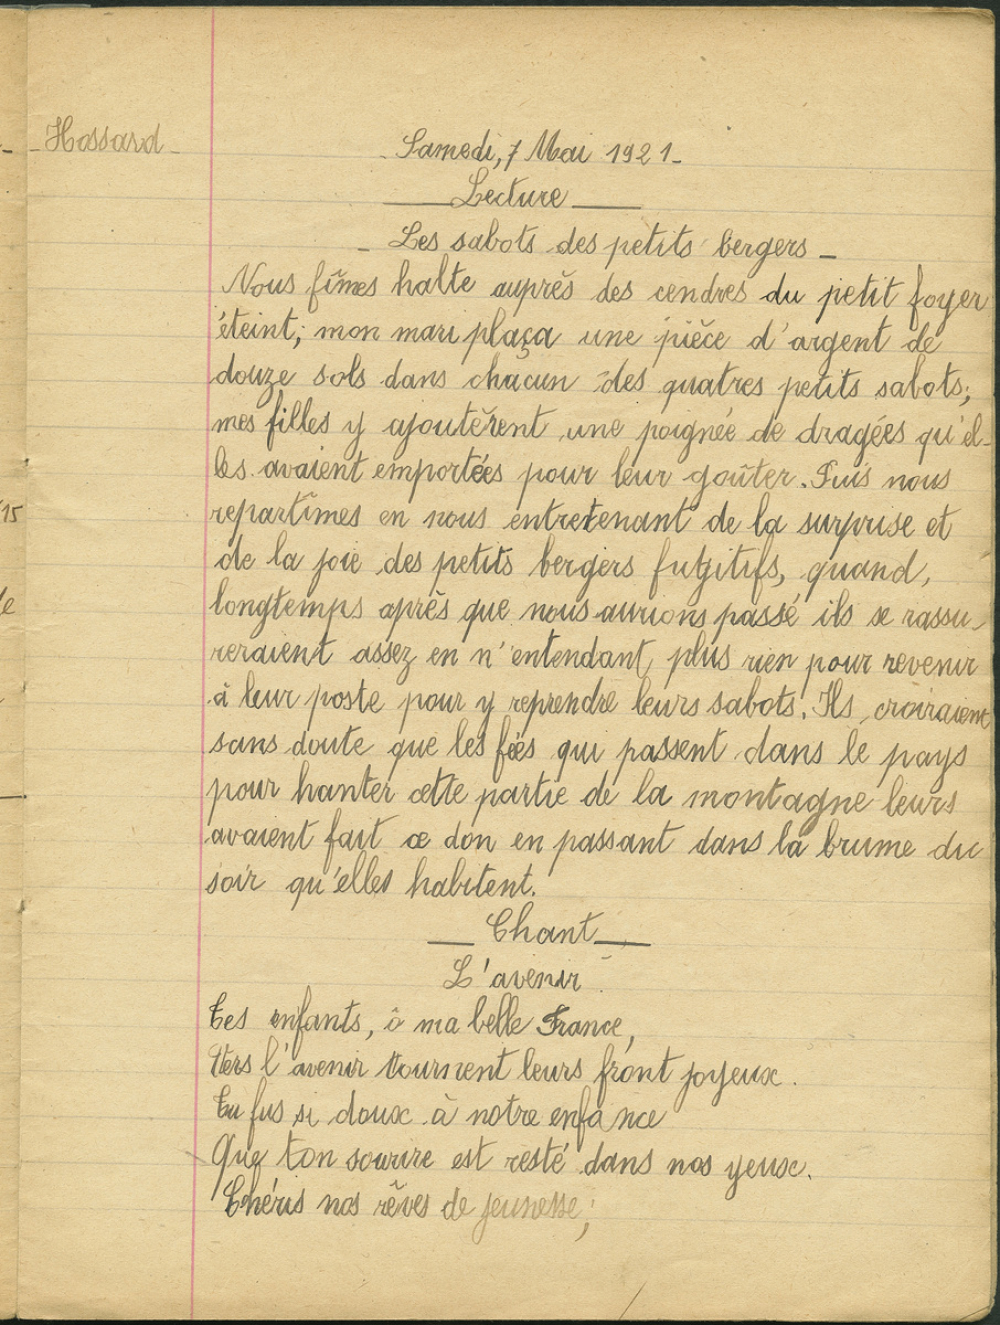 Hossard
Samedi, 7 Mai 1921
Lecture
Les sabots des petits bergers
Nous fîmes halte auprès des cendres du petit foyer
éteint; mon mari plaça une pièce d'argent de
douze sols dans chacun des quatres petits sabots;
mes filles y ajoutèrent une poignée de dragées qu'el-
les avaient emportées pour leur goûter. Puis nous
repartîmes en nous entretenant de la surprise et
de la joie des petits bergers futgitifs, quand,
longtemps après que nous aurions passé ils se rassu-
reraient assez en n'entendant plus rien pour revenir
à leur poste pour y reprendre leurs sabots. Ils croiraient
sans doute que les fées qui passent dans le pays
pour hanter cette partie de la montagne leurs
avaient fait ce don en passant dans la brume du
soir qu'elles habitent.
Chant
L'avenir
Tes enfants, ô ma belle France,
Vers l'avenir tournent leurs front joyeux.
Tu fus si doux à notre enfance
Que ton sourire est resté dans nos yeux.
Chéris nos rêves de jeunesse;
15